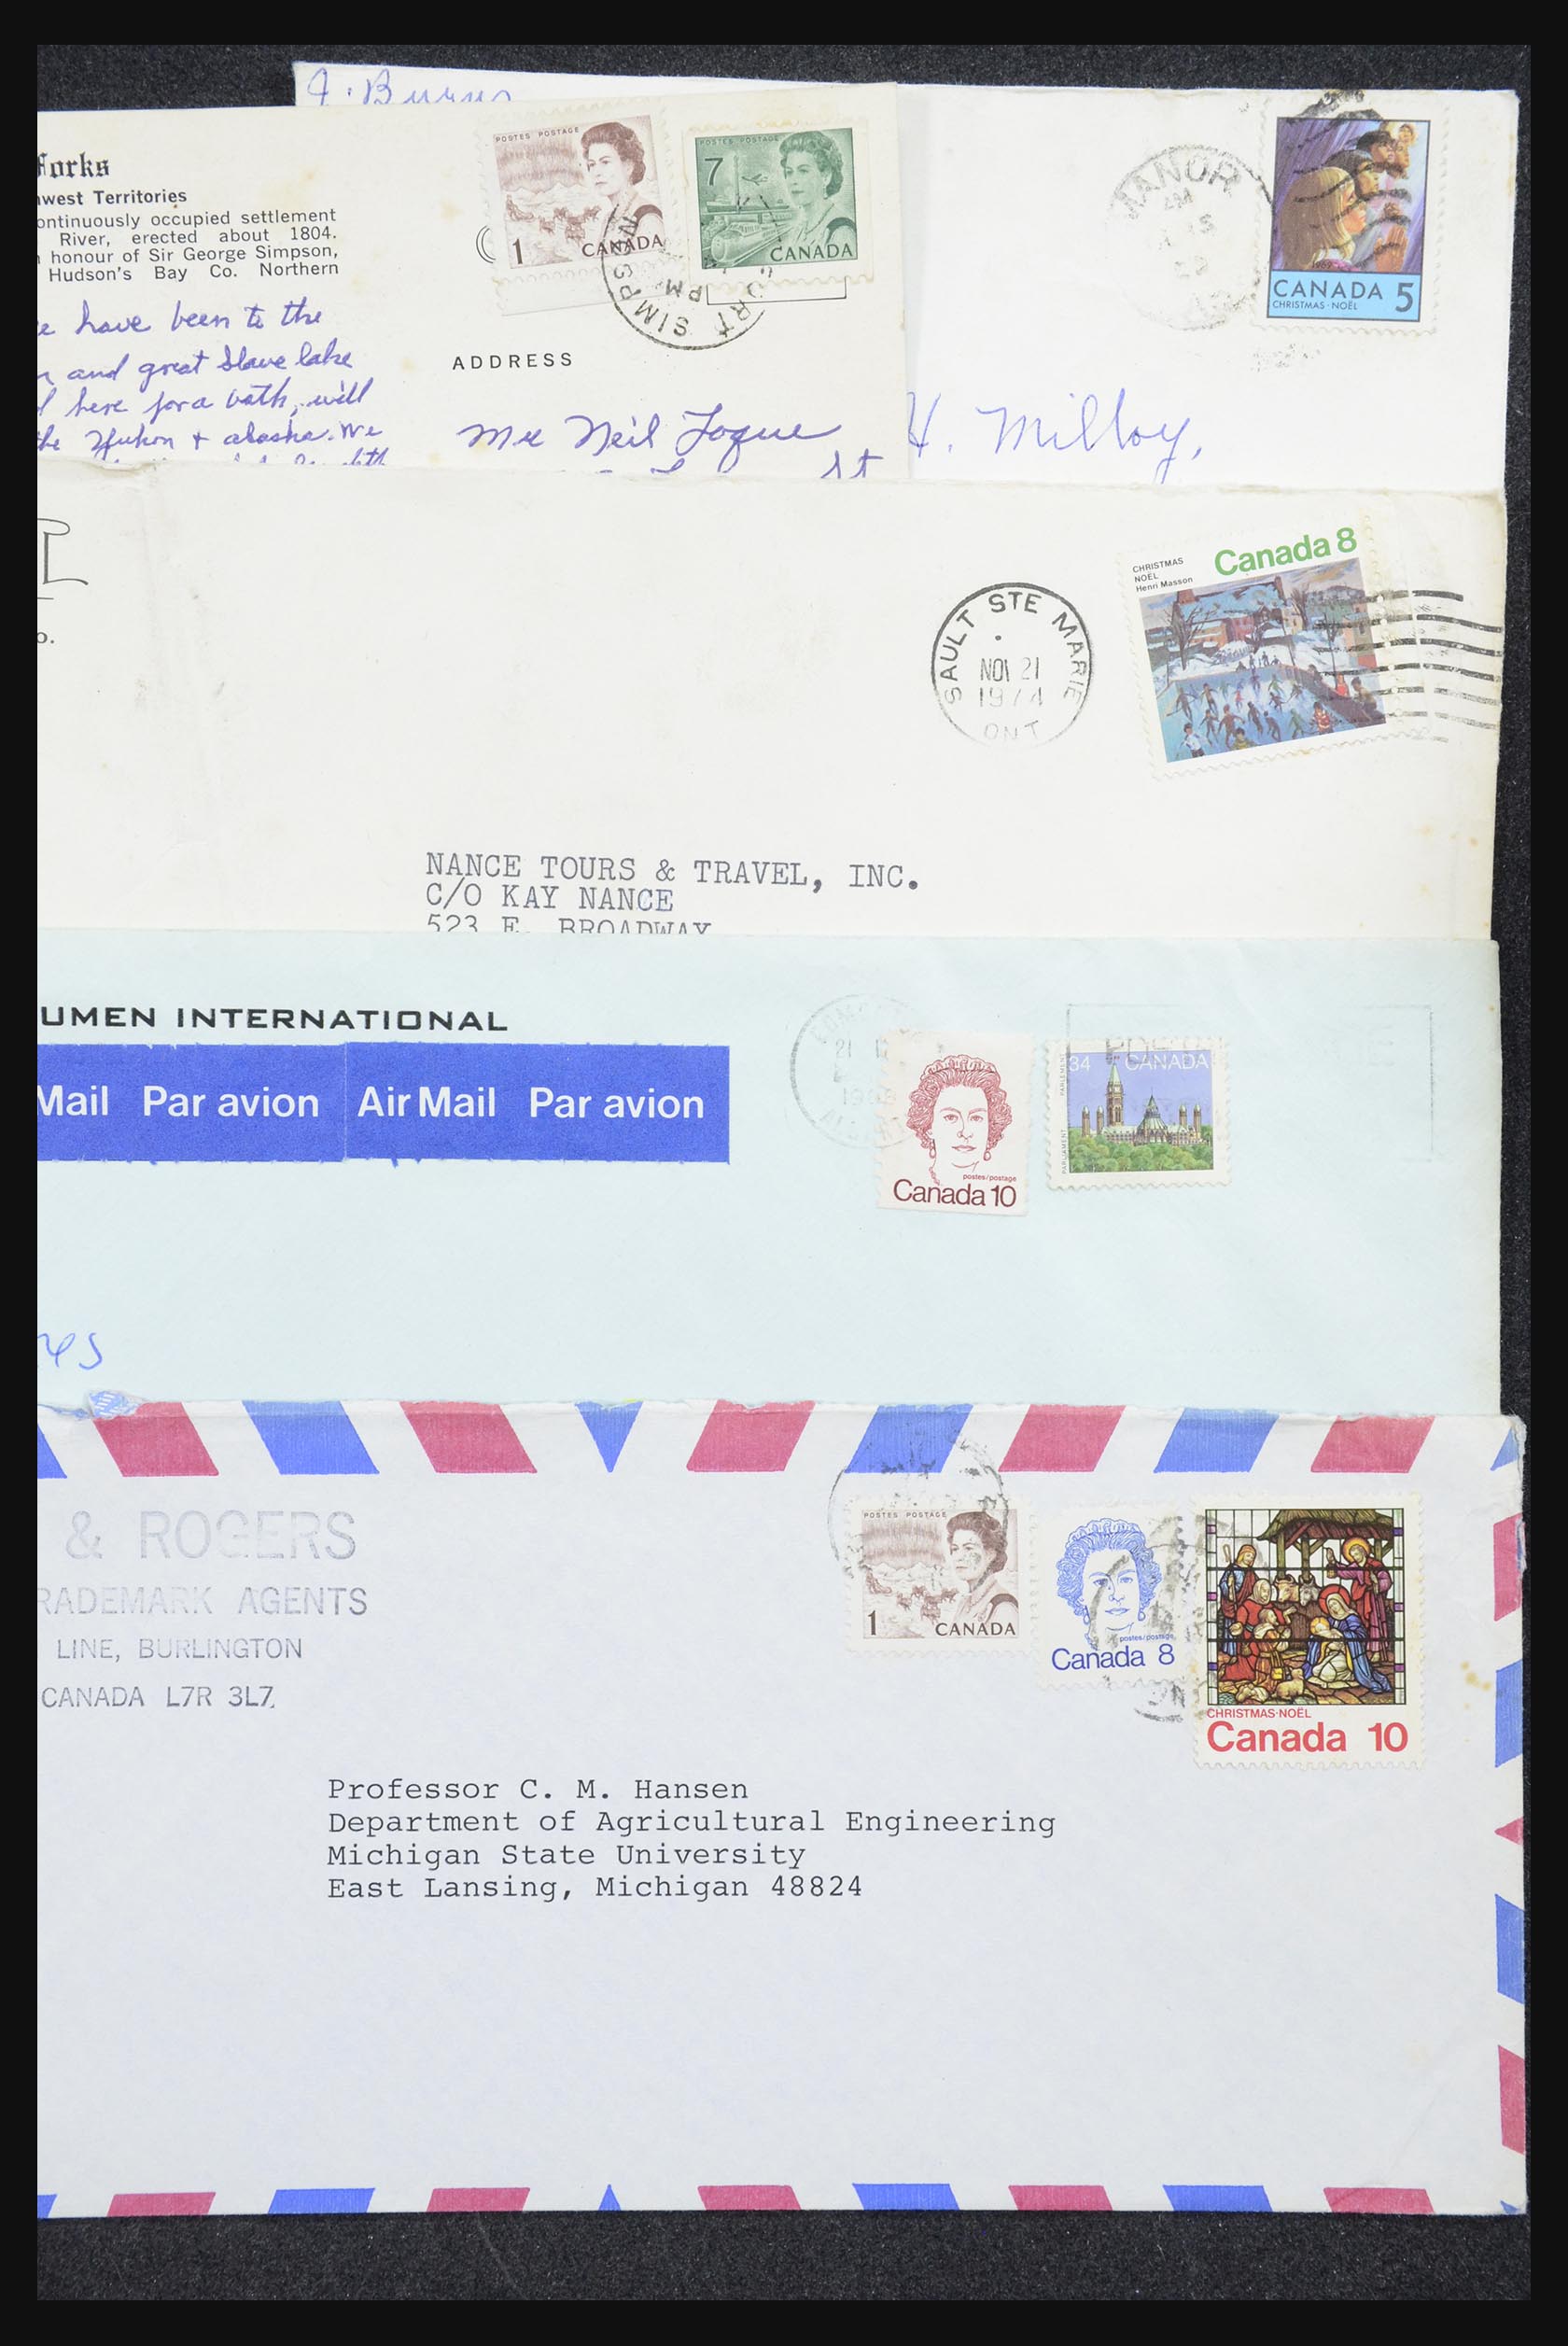 J. Burns
Forks
hwest Territories
ontinuously occupied settlement
River, erected about 1804.
honour of Sir George Simpson,
Hudson's Bay Co. Northern
e have been to the
and great Slave lake
here for a bath, will
the Yukon + alaska. We
POSTES POSTAGE
1 CANADA
POSTES POSTAGE
7
CANADA
FORT SIMPSON
PM
ADDRESS
Mr Neil Logue
St
MANOR
CANADA 5
CHRISTMAS·NOËL
H. Milloy,
o.
SAULT STE MARIE
NOV 21
1974
ONT
CHRISTMAS
NOËL
Henri Masson
Canada 8
NANCE TOURS & TRAVEL, INC.
C/O KAY NANCE
523 E. BROADWAY
UMEN INTERNATIONAL
Mail Par avion Air Mail Par avion
21
postes/postage
Canada 10
34 CANADA
PARLIAMENT PARLEMENT
& ROGERS
RADEMARK AGENTS
LINE, BURLINGTON
CANADA L7R 3L7
POSTES POSTAGE
1 CANADA
postes/postage
Canada 8
CHRISTMAS·NOËL
Canada 10
Professor C. M. Hansen
Department of Agricultural Engineering
Michigan State University
East Lansing, Michigan 48824